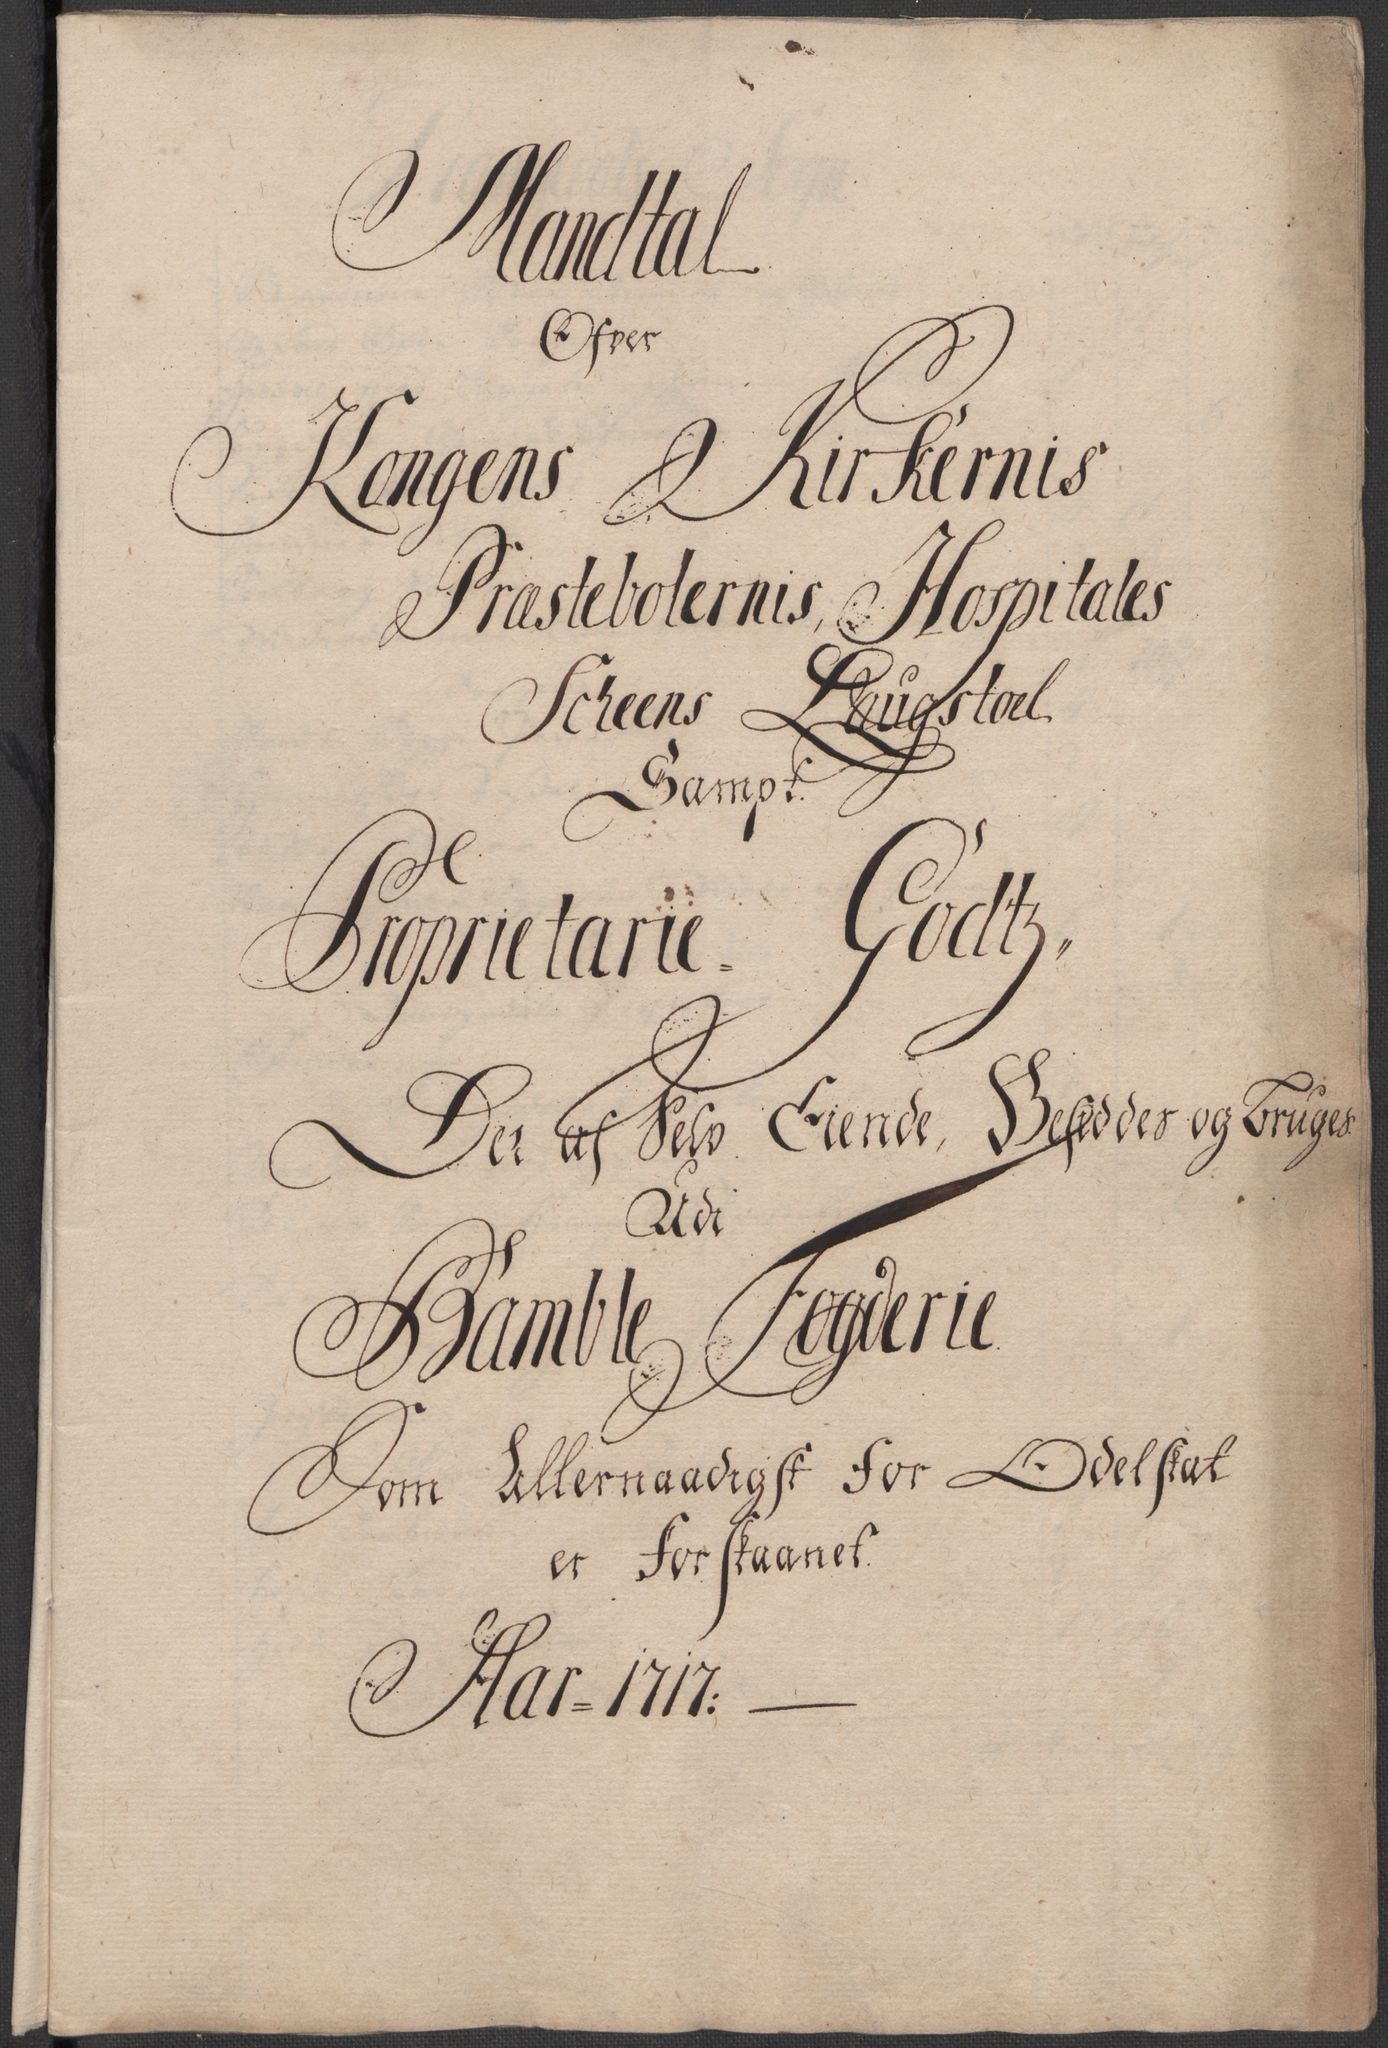 Mandtal
Ofver
Kongens Kirkernis
Præstebolernis, Hospitales
Scheens Laugstoel
Sampt
Proprietarie= Godtz,
Der af Selv Eiende, Besidder og Bruges
Udi
Bamble Fogderie
Som Allernaadigst for Odelskat
er forskaanet.
Aar= 1717: